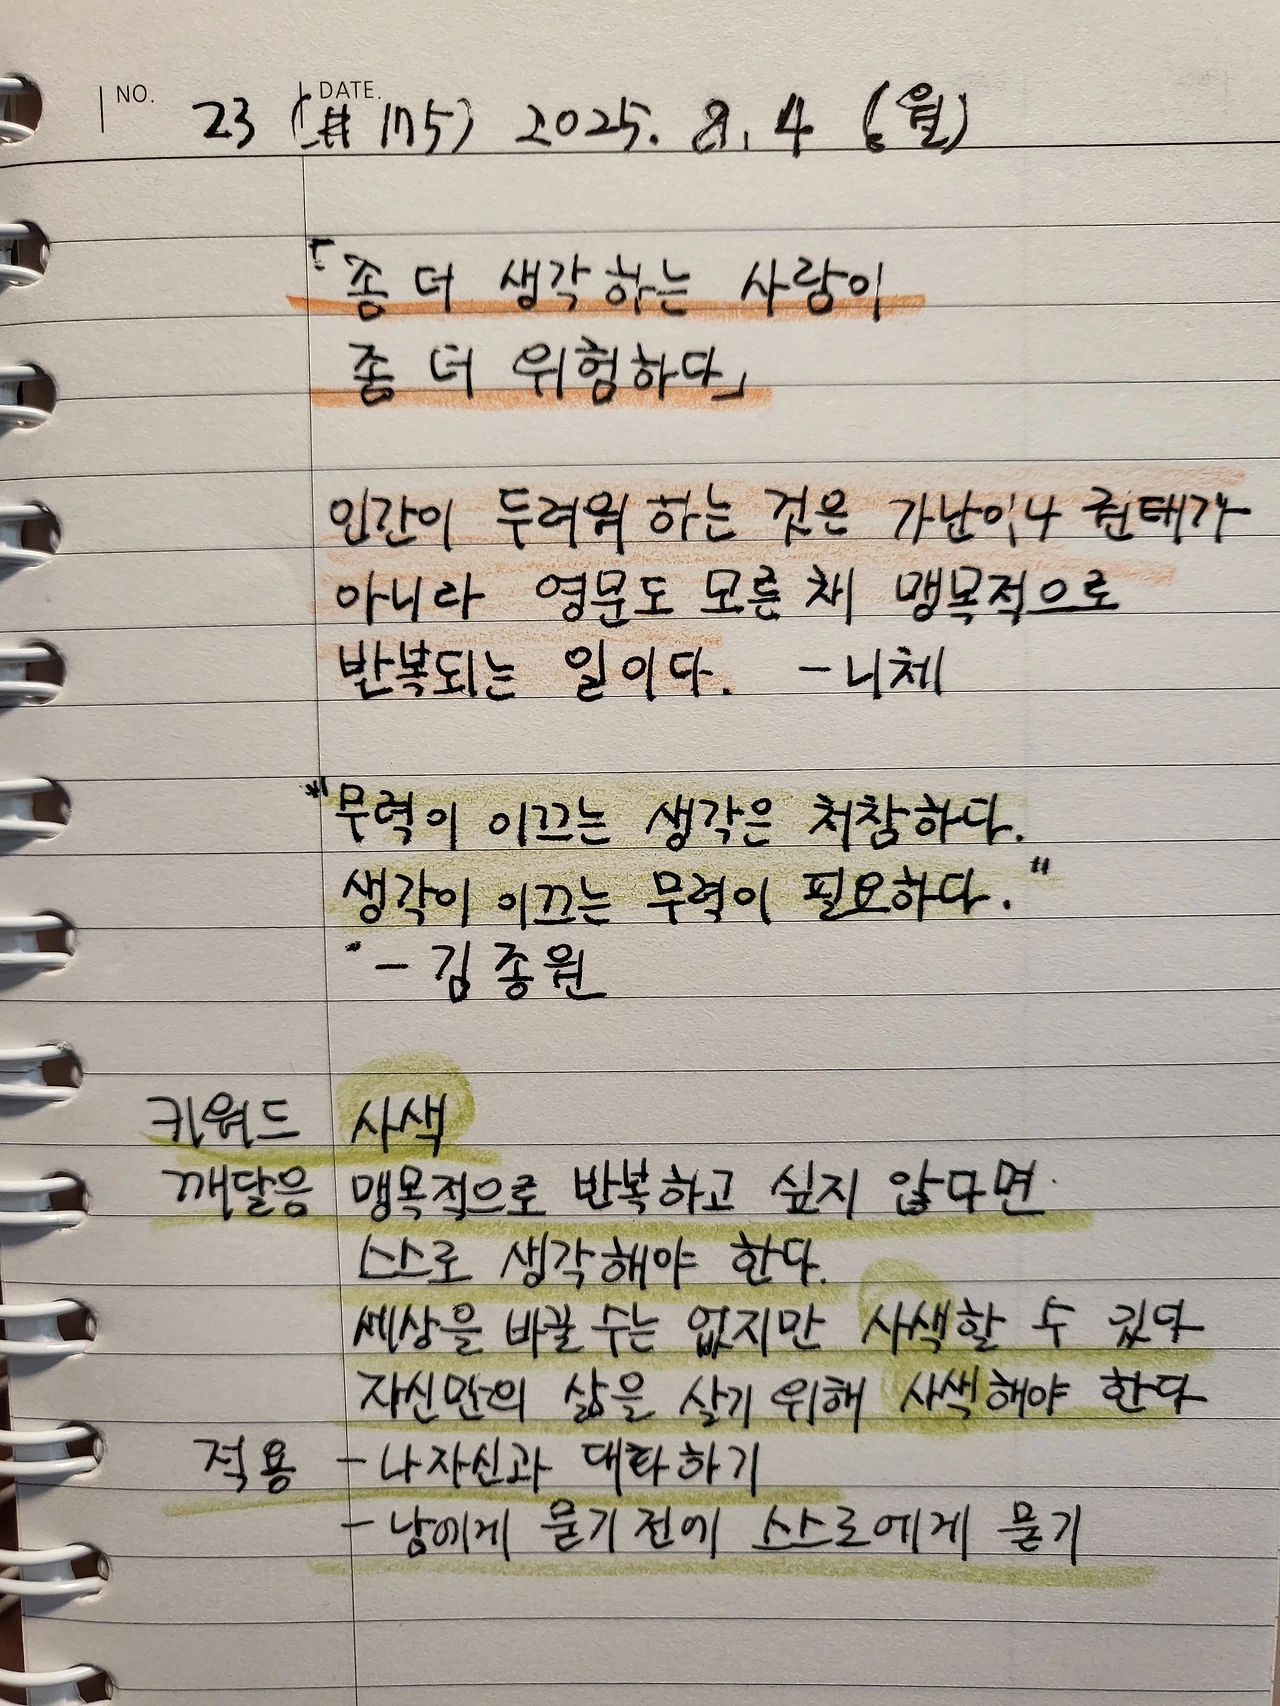 NO. DATE.
23 (# 175) 2025. 8. 4 (월)
「좀 더 생각하는 사람이
좀 더 위험하다」
인간이 두려워 하는 것은 가난이나 권태가
아니라 영문도 모른 채 맹목적으로
반복되는 일이다. - 니체
"무력이 이끄는 생각은 처참하다.
생각이 이끄는 무력이 필요하다."
- 김종원
키워드 사색
깨달음 맹목적으로 반복하고 싶지 않다면
스스로 생각해야 한다.
세상을 바꿀 수는 없지만 사색할 수 있다
자신만의 삶을 살기 위해 사색해야 한다
적용 - 나 자신과 대화하기
- 남에게 묻기 전에 스스로에게 묻기